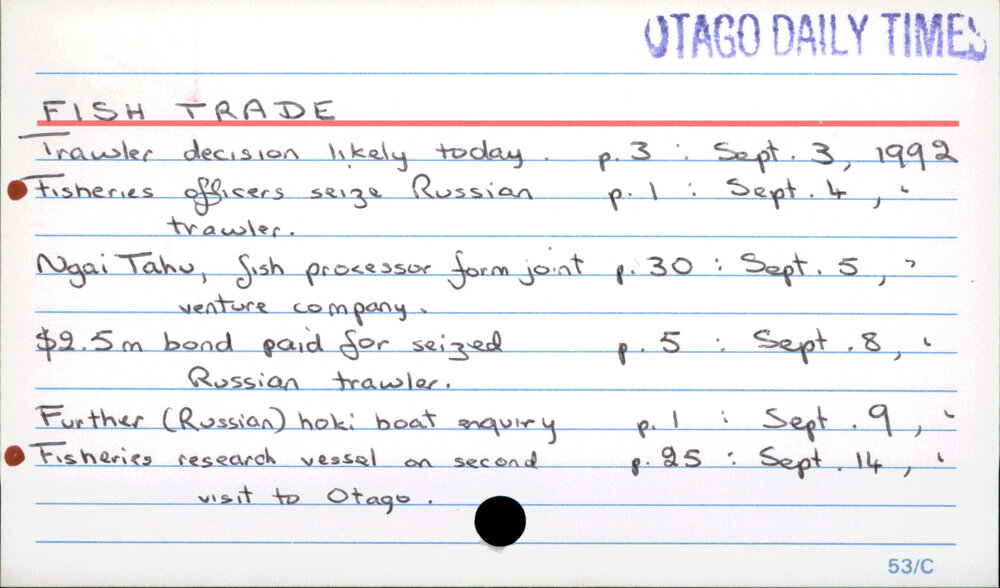 OTAGO DAILY TIMES
FISH TRADE
Trawler decision likely today. p.3 : Sept. 3, 1992
Fisheries officers seize Russian p.1 : Sept. 4, "
trawler.
Ngai Tahu, fish processor form joint p.30 : Sept. 5, "
venture company.
$2.5m bond paid for seized p.5 : Sept. 8, "
Russian trawler.
Further (Russian) hoki boat enquiry p.1 : Sept. 9, "
Fisheries research vessel on second p.25 : Sept. 14, "
visit to Otago.
53/C